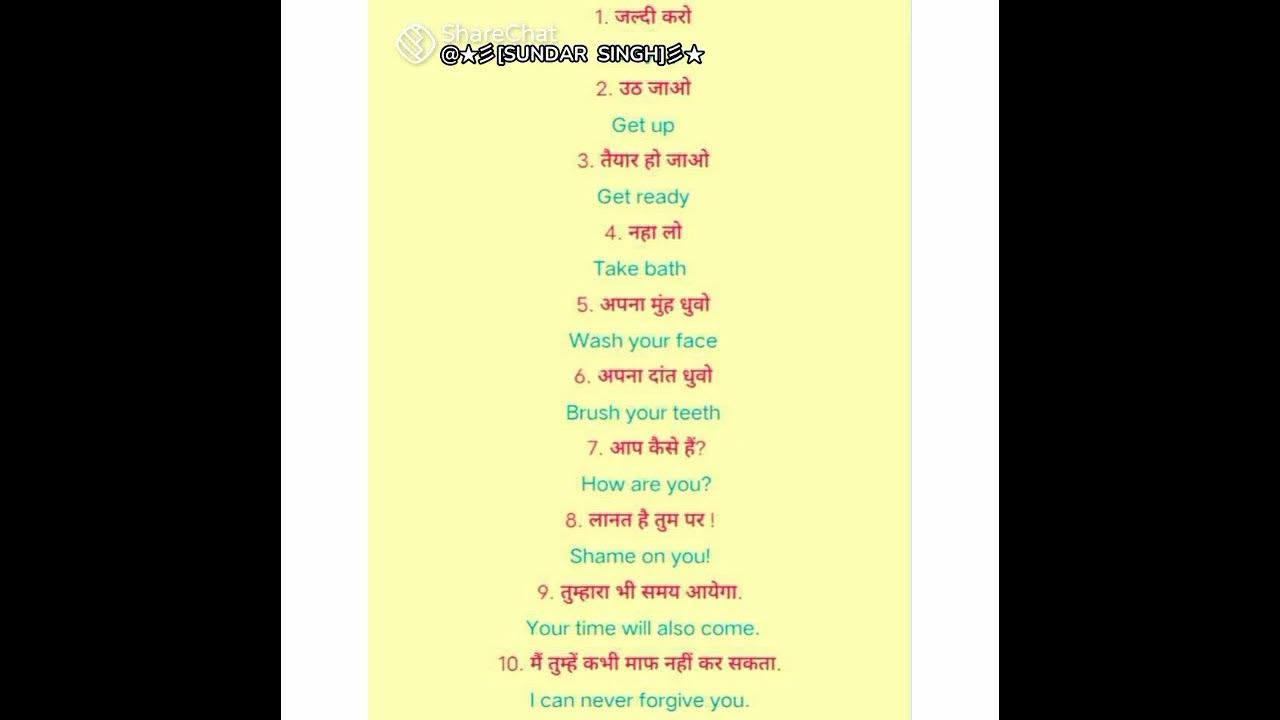 1. जल्दी करो
ShareChat
@★彡[SUNDAR SINGH]彡★
2. उठ जाओ
Get up
3. तैयार हो जाओ
Get ready
4. नहा लो
Take bath
5. अपना मुंह धुवो
Wash your face
6. अपना दांत धुवो
Brush your teeth
7. आप कैसे हैं?
How are you?
8. लानत है तुम पर !
Shame on you!
9. तुम्हारा भी समय आयेगा.
Your time will also come.
10. मैं तुम्हें कभी माफ नहीं कर सकता.
I can never forgive you.